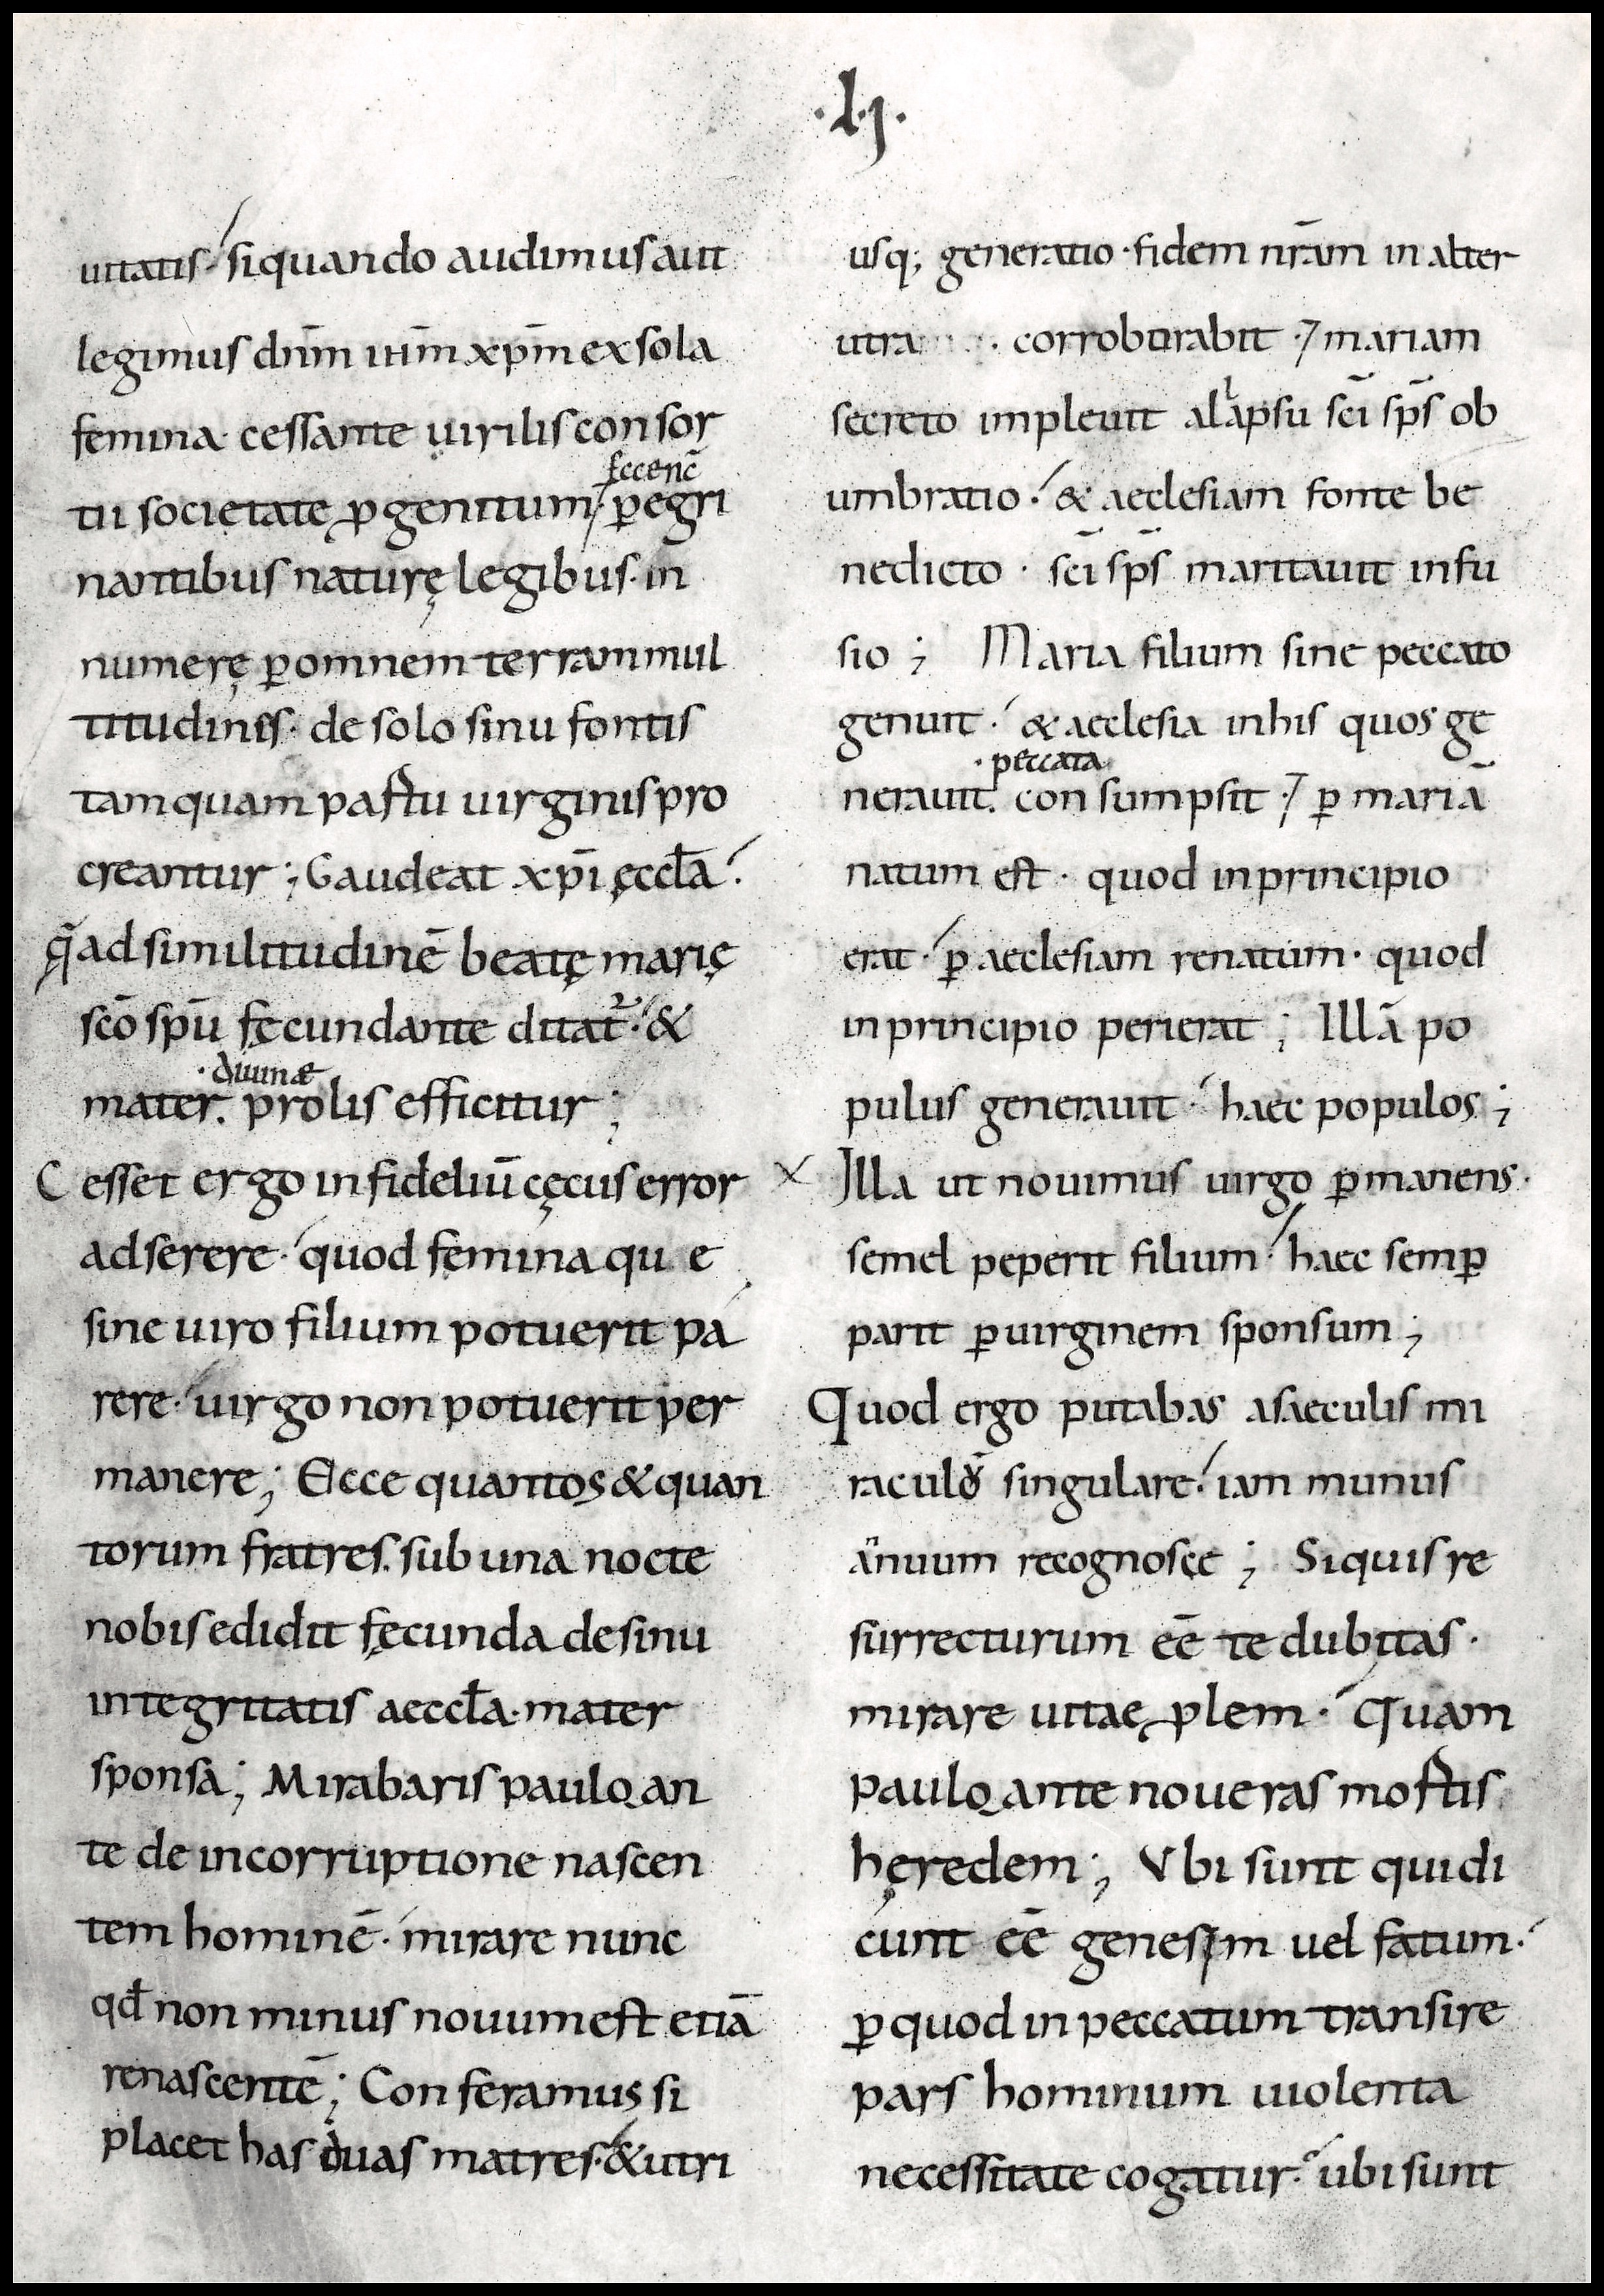 ·lj·
uitatis·́ siquando audimus aut
legimus dn̄m ih̄m xp̄m ex sola
femina· cessante uirilis consor
tii societate ꝓgenitum· ꝑegri
nantibus naturę legibus· in
numerę ꝑ omnem terram mul
titudinis· de solo sinu fontis
tamquam pastu uirginis pro
creantur; Gaudeat xp̄i ęccl̄a·́
q̄ ad similitudinē beatę marię
scō spū fęcundante ditat᷑·́ &
·diuinæ
mater. prolis efficitur;
Cesset ergo infideliū cęcus error
adserere·́ quod femina que
sine uiro filium potuerit pa
rere·́ uirgo non potuerit per
manere; Ecce quantos & quan
torum fratres. sub una nocte
nobis edidit fęcunda de sinu
integritatis aeccl̄a· mater
sponsa; Mirabaris paulo an
te de incorruptione nascen
tem hominē·́ mirare nunc
qđ non minus nouum est etiā
renascentē; Conferamus si
placet has duas matres·́ & utri
usq; generatio· fidem nr̄am in alter
utra · corroborabit ·⁊ mariam
secreto impleuit allapsu sc̄i sp̄s ob
umbratio·́ & aecclesiam fonte be
nedicto · sc̄i sp̄s maritauit infu
sio ; Maria filium sine peccato
genuit·́ & aecclesia in his quos ge
·peccata
nerauit. consumpsit ·⁊ ꝑ mariā
natum est · quod in principio
erat·́ ꝑ aecclesiam renatum· quod
in principio perierat ; Illā po
pulus generauit·́ haec populos ;
X Illa ut nouimus uirgo ꝑmanens·
semel peperit filium·́ haec semꝑ
parit ꝑ uirginem sponsum ;
Quod ergo putabas a saeculis mi
raculū singulare·́ iam munus
annuum recognosce ; Si quis re
surrecturum eē te dubitas·
mirare uitae ꝓlem·́ Quam
paulo ante noueras mortis
hęredem; Vbi sunt qui di
cunt eē genesim uel fatum·́
ꝑ quod in peccatum transire
pars hominum uiolenta
necessitate cogatur·́ ubi sunt